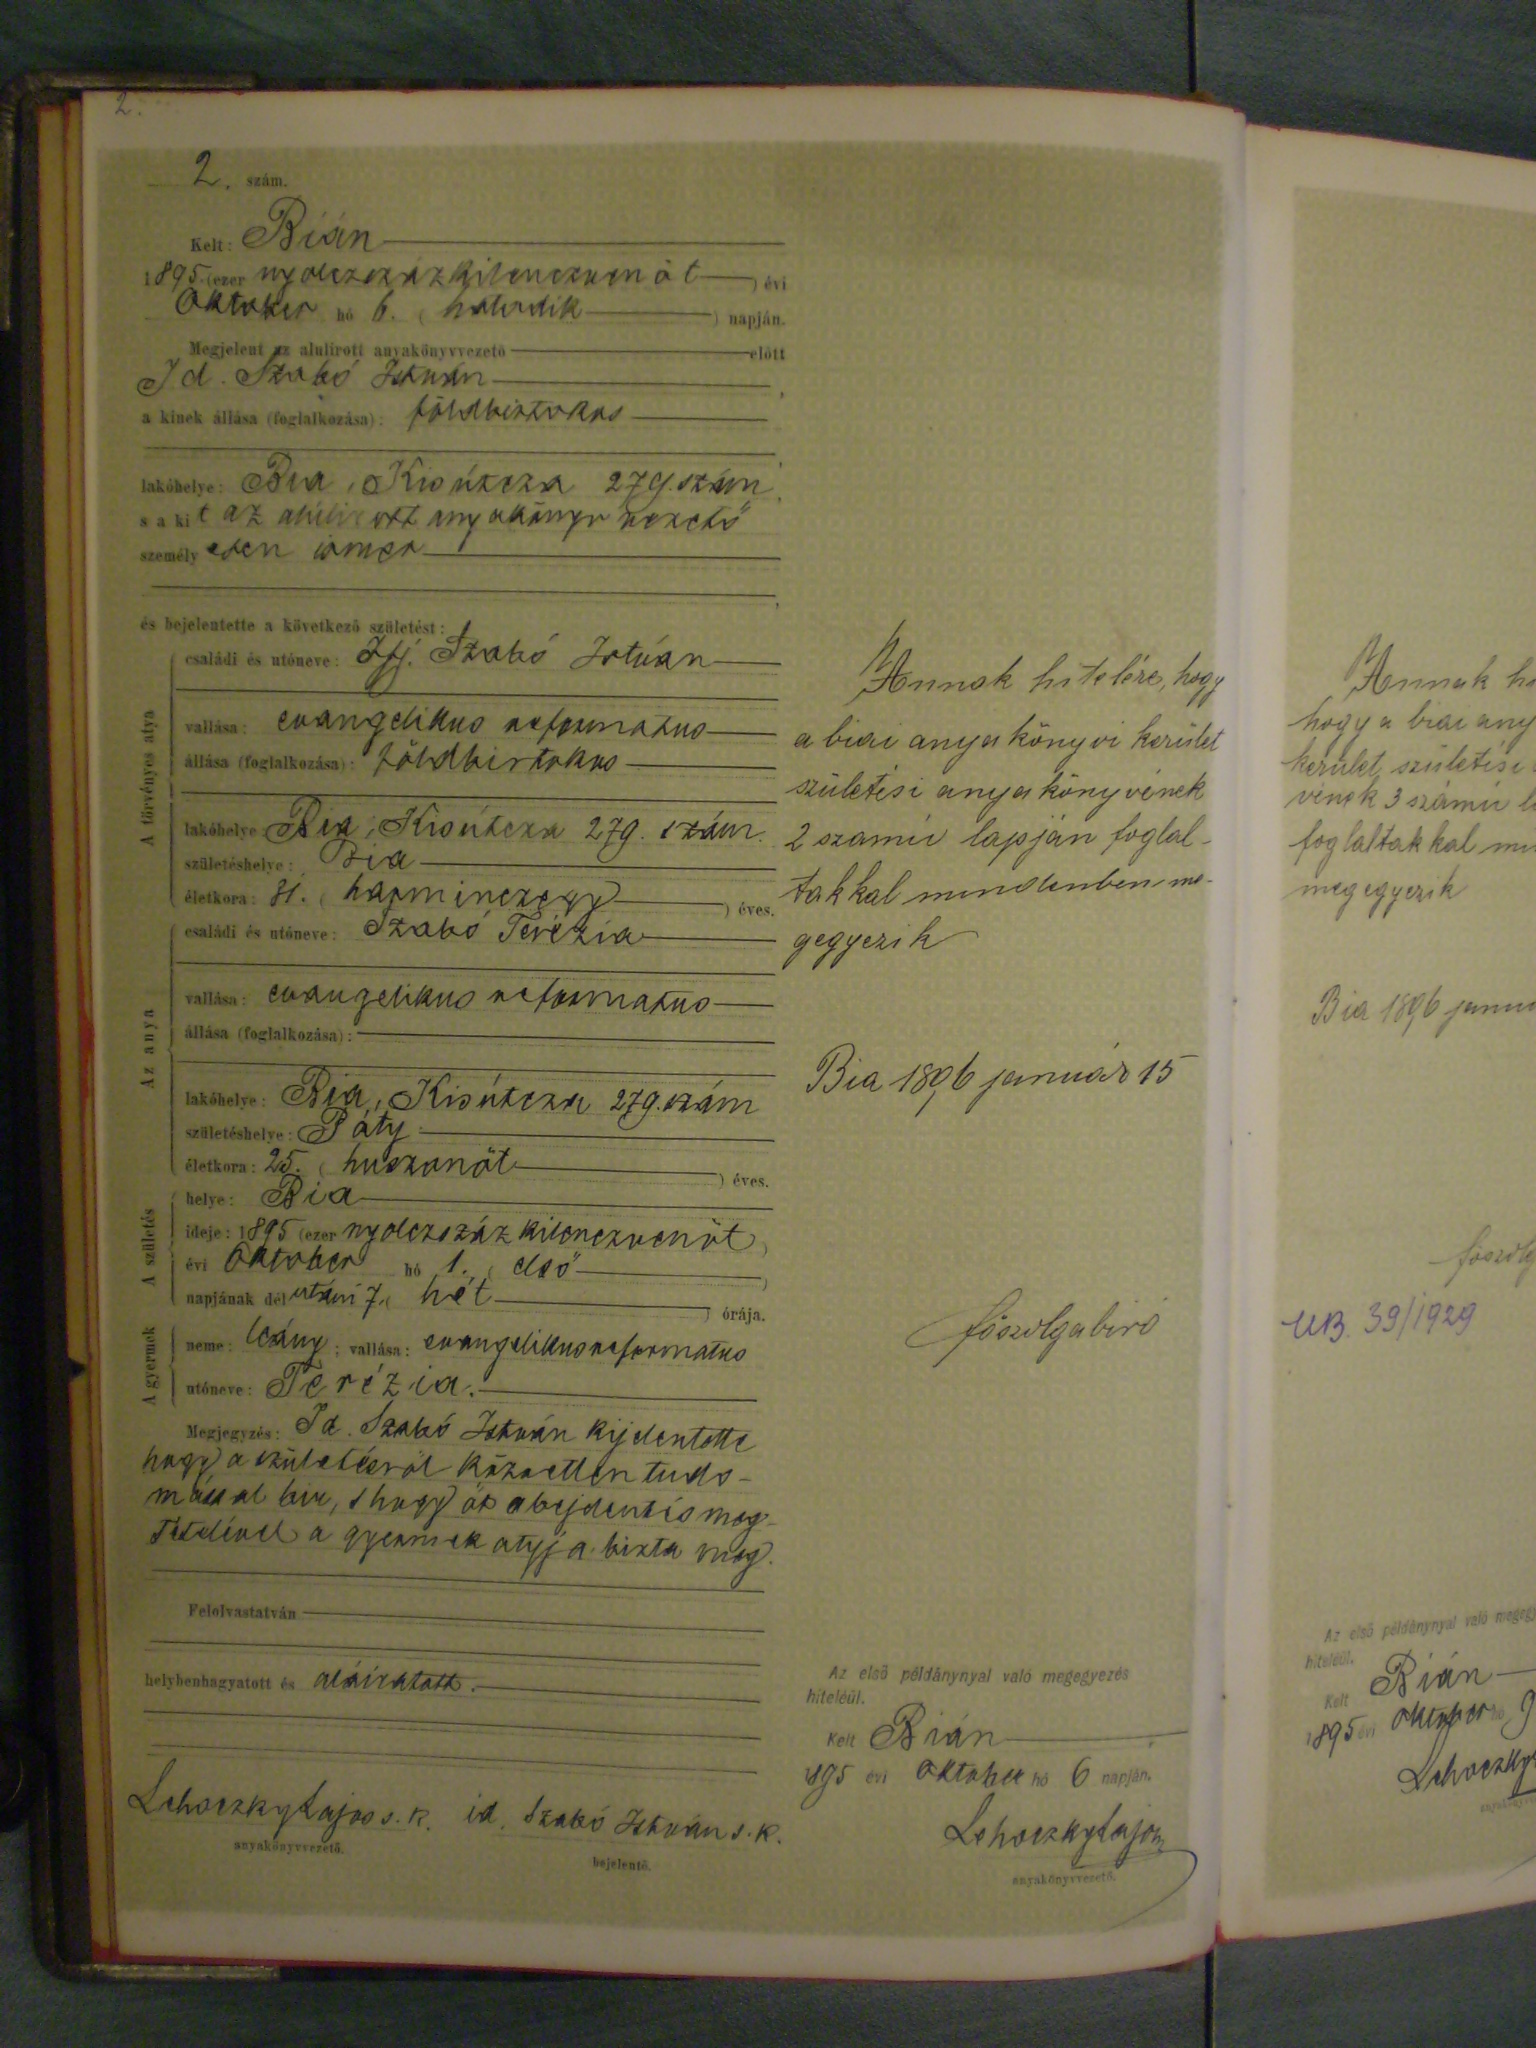 2.
2. szám.
Kelt: Bián
1895. (ezer nyolczszázkilenczvenöt) évi
Oktober hó 6. (hatodik) napján.
Megjelent az alulirott anyakönyvvezető előtt
Id. Szabó István,
a kinek állása (foglalkozása): földbirtokos
lakóhelye: Bia, Kisútcza 279. szám,
s a kit az alulirott anyakönyvvezető
személyesen ismer
és bejelentette a következő születést:
A törvényes atya
családi és utóneve: Ifj. Szabó István
vallása: evangelikus reformatus
állása (foglalkozása): földbirtokos
lakóhelye: Bia, Kisútcza 279. szám.
születéshelye: Bia
életkora: 31. (harminczegy) éves.
Az anya
családi és utóneve: Szabó Terézia
vallása: evangelikus reformatus
állása (foglalkozása):
lakóhelye: Bia, Kisútcza 279. szám
születéshelye: Páty
életkora: 25. (huszonöt) éves.
A születés
helye: Bia
ideje: 1895 (ezer nyolczszázkilenczvenöt)
évi Oktober hó 1. (első)
napjának délutáni 7. (hét) órája.
A gyermek
neme: leány; vallása: evangelikus reformatus
utóneve: Terézia.
Megjegyzés: Id. Szabó István kijelentette
hogy a születésről közvetlen tudo-
mással bir, s hogy őt a bejelentés meg-
tételével a gyermek atyja bizta meg.
Felolvastatván
helybenhagyatott és aláiratott.
Lehoczky Lajos s. k. id. Szabó István s. k.
anyakönyvvezető. bejelentő.
Annak hitelére, hogy
a biai anyakönyvi kerület
születési anyakönyvének
2 szamú lapján foglal-
takkal mindenben me-
gegyezik
Bia 1896 január 15
főszolgabiró
Az első példánynyal való megegyezés
hiteléül.
Kelt Bián
1895 évi Oktober hó 6 napján.
Lehoczky Lajos
anyakönyvvezető.
Annak
hogy a biai
kerület születési
vének 3 számú
foglaltakkal
megegyezik
Bia 1896
UB. 39/1929
Az első példánynyal való
hiteléül.
Kelt Bián
1895 évi Oktober hó 9